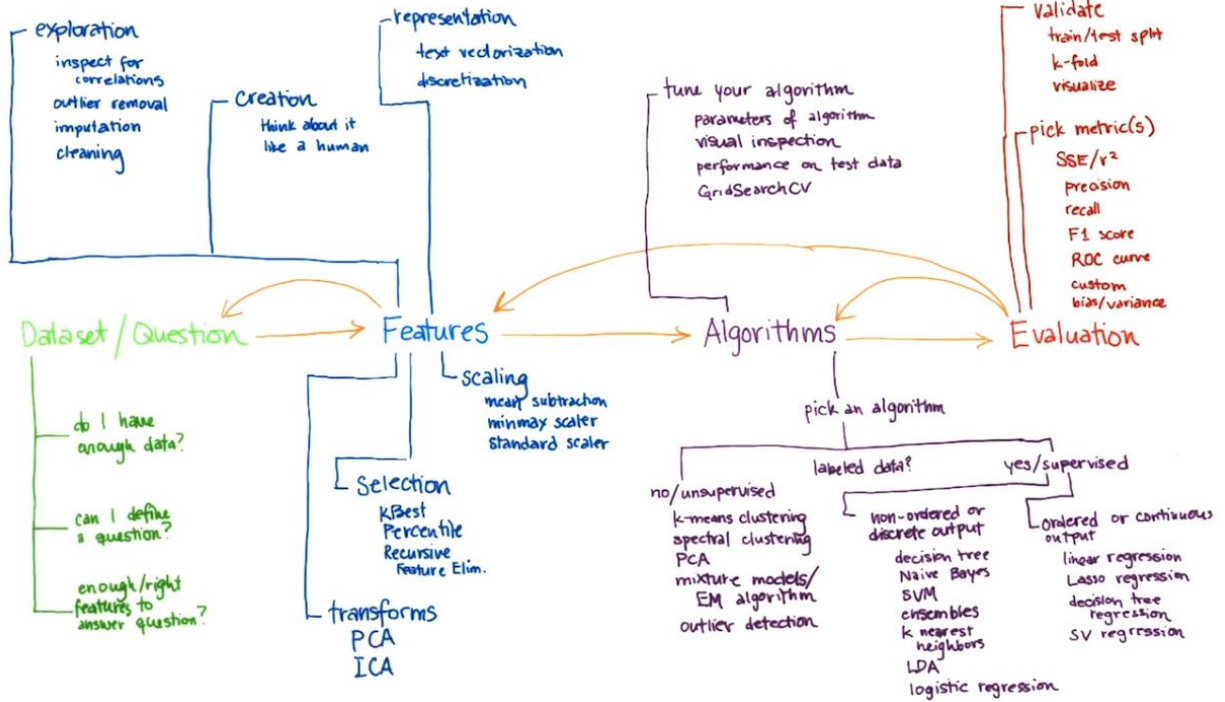 exploration
inspect for
correlations
outlier removal
imputation
cleaning
creation
think about it
like a human
representation
text vectorization
discretization
tune your algorithm
parameters of algorithm
visual inspection
performance on test data
GridSearchCV
validate
train/test split
k-fold
visualize
pick metric(s)
SSE/r²
precision
recall
F1 score
ROC curve
custom
bias/variance
Dataset/Question
Features
Algorithms
Evaluation
do I have
enough data?
can I define
a question?
enough/right
features to
answer question?
scaling
mean subtraction
minmax scaler
standard scaler
selection
KBest
Percentile
Recursive
Feature Elim.
transforms
PCA
ICA
pick an algorithm
labeled data?
no/unsupervised
k-means clustering
spectral clustering
PCA
mixture models/
EM algorithm
outlier detection
yes/supervised
non-ordered or
discrete output
decision tree
Naive Bayes
SVM
ensembles
k nearest
neighbors
LDA
logistic regression
ordered or continuous
output
linear regression
Lasso regression
decision tree
regression
SV regression